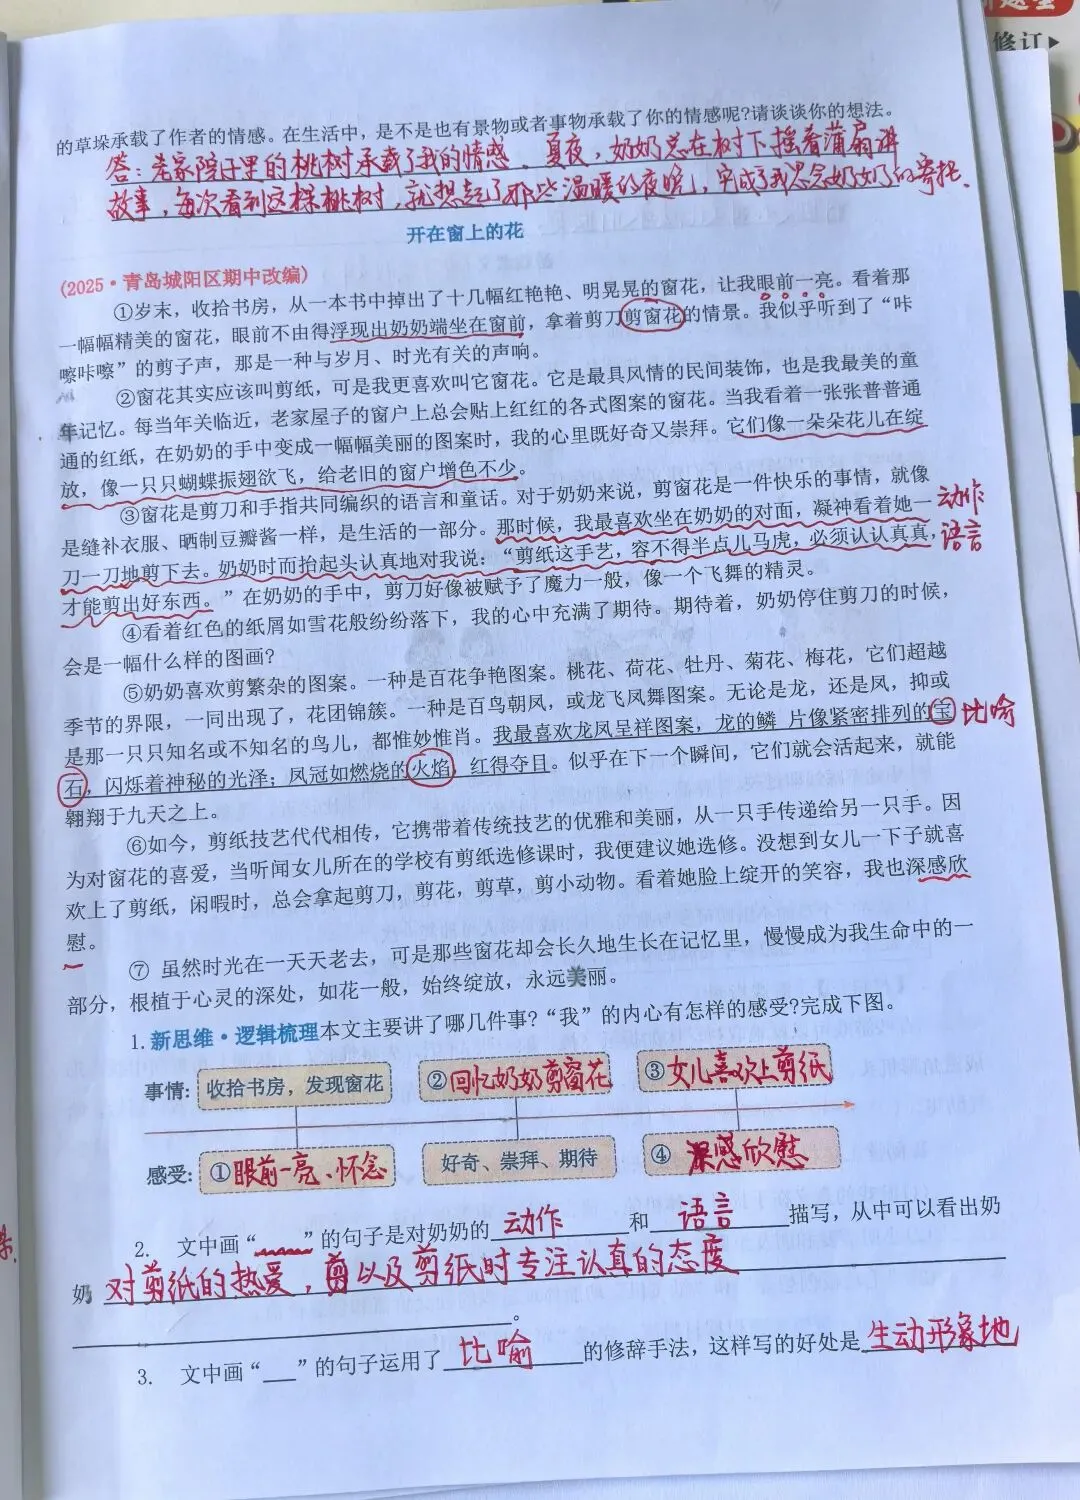 修订
的草垛承载了作者的情感。在生活中，是不是也有景物或者事物承载了你的情感呢?请谈谈你的想法。
答：老家院子里的桃树承载了我的情感、夏夜，奶奶总在树下摇着蒲扇讲
故事，每次看到这棵桃树，就想起了那些温暖的夜晚，它成了我思念奶奶的寄托.
开在窗上的花
(2025·青岛城阳区期中改编)
①岁末，收拾书房，从一本书中掉出了十几幅红艳艳、明晃晃的窗花，让我眼前一亮。看着那
一幅幅精美的窗花，眼前不由得浮现出奶奶端坐在窗前，拿着剪刀剪窗花的情景。我似乎听到了“咔
嚓咔嚓”的剪子声，那是一种与岁月、时光有关的声响。
②窗花其实应该叫剪纸，可是我更喜欢叫它窗花。它是最具风情的民间装饰，也是我最美的童
年记忆。每当年关临近，老家屋子的窗户上总会贴上红红的各式图案的窗花。当我看着一张张普普通
通的红纸，在奶奶的手中变成一幅幅美丽的图案时，我的心里既好奇又崇拜。它们像一朵朵花儿在绽
放，像一只只蝴蝶振翅欲飞，给老旧的窗户增色不少。
③窗花是剪刀和手指共同编织的语言和童话。对于奶奶来说，剪窗花是一件快乐的事情，就像
是缝补衣服、晒制豆瓣酱一样，是生活的一部分。那时候，我最喜欢坐在奶奶的对面，凝神看着她一 动作
刀一刀地剪下去。奶奶时而抬起头认真地对我说：“剪纸这手艺，容不得半点儿马虎，必须认认真真， 语言
才能剪出好东西。”在奶奶的手中，剪刀好像被赋予了魔力一般，像一个飞舞的精灵。
④看着红色的纸屑如雪花般纷纷落下，我的心中充满了期待。期待着，奶奶停住剪刀的时候，
会是一幅什么样的图画?
⑤奶奶喜欢剪繁杂的图案。一种是百花争艳图案。桃花、荷花、牡丹、菊花、梅花，它们超越
季节的界限，一同出现了，花团锦簇。一种是百鸟朝凤，或龙飞凤舞图案。无论是龙，还是凤，抑或
是那一只只知名或不知名的鸟儿，都惟妙惟肖。我最喜欢龙凤呈祥图案，龙的鳞 片像紧密排列的宝 比喻
石，闪烁着神秘的光泽；凤冠如燃烧的火焰，红得夺目。似乎在下一个瞬间，它们就会活起来，就能
翱翔于九天之上。
⑥如今，剪纸技艺代代相传，它携带着传统技艺的优雅和美丽，从一只手传递给另一只手。因
为对窗花的喜爱，当听闻女儿所在的学校有剪纸选修课时，我便建议她选修。没想到女儿一下子就喜
欢上了剪纸，闲暇时，总会拿起剪刀，剪花，剪草，剪小动物。看着她脸上绽开的笑容，我也深感欣
慰。
⑦ 虽然时光在一天天老去，可是那些窗花却会长久地生长在记忆里，慢慢成为我生命中的一
部分，根植于心灵的深处，如花一般，始终绽放，永远美丽。
1.新思维·逻辑梳理本文主要讲了哪几件事?“我”的内心有怎样的感受?完成下图。
事情: 收拾书房，发现窗花 ②回忆奶奶剪窗花 ③女儿喜欢上剪纸
感受: ①眼前一亮、怀念 好奇、崇拜、期待 ④ 深感欣慰
2. 文中画“﹏﹏”的句子是对奶奶的 动作 和 语言 描写，从中可以看出奶
奶 对剪纸的热爱，以及剪纸时专注认真的态度
。
3. 文中画“___”的句子运用了 比喻 的修辞手法，这样写的好处是 生动形象地